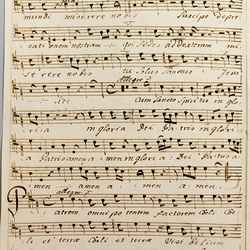 mundi miserere nobis Suscipe depre
cationem nostram qui Sedes addexteram
serere nobis tu Solus Sanctus Jesu
allegro
Cum Sancto Spiritu in glo
ria in gloria Dei Patris in glori
a Patris amen amen in gloria Dei Patris a
men amen amen amen
allegro
Patrem omnipotentem factorem Cæli
et terræ Cæli et terræ Visibilium